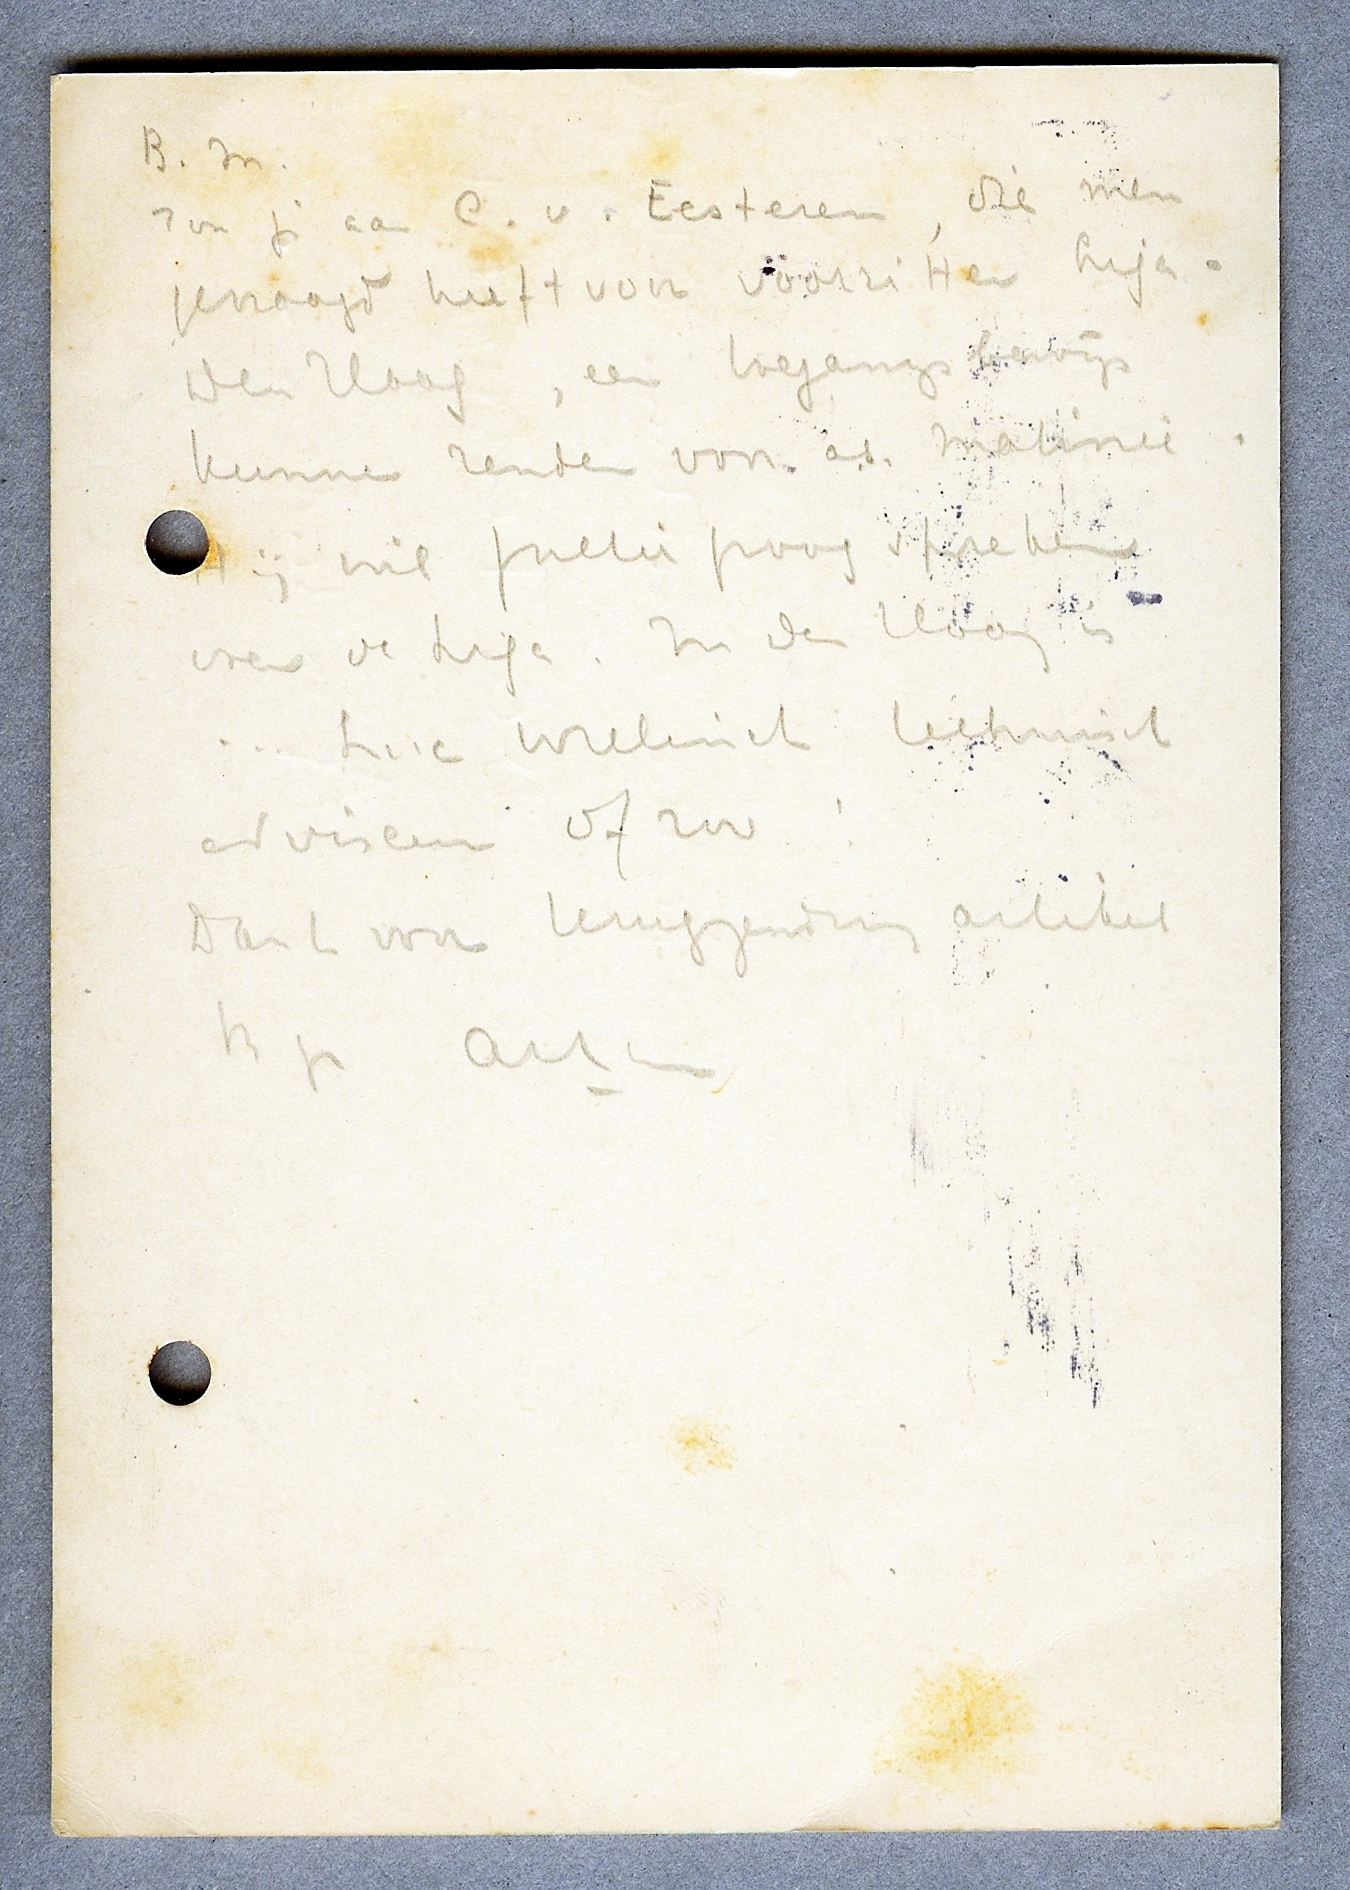 B. M.
zou je aan C. v. Eesteren, die men
gevraagd heeft voor voorzitter Liga.
Den Haag, een toegangsbewijs
kunnen zenden voor a.s. matinee.
Hij wil jullie graag spreken
over de Liga. In den Haag is
... technisch
adviseur of zoo!
Dank voor terugzending artikel